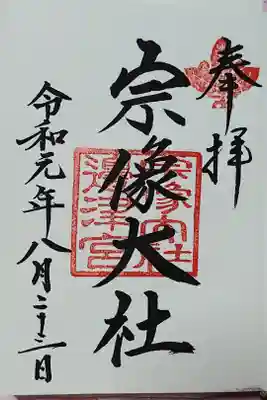 奉拝
宗像大社
宗像大社
邊津宮
令和元年八月二十二日